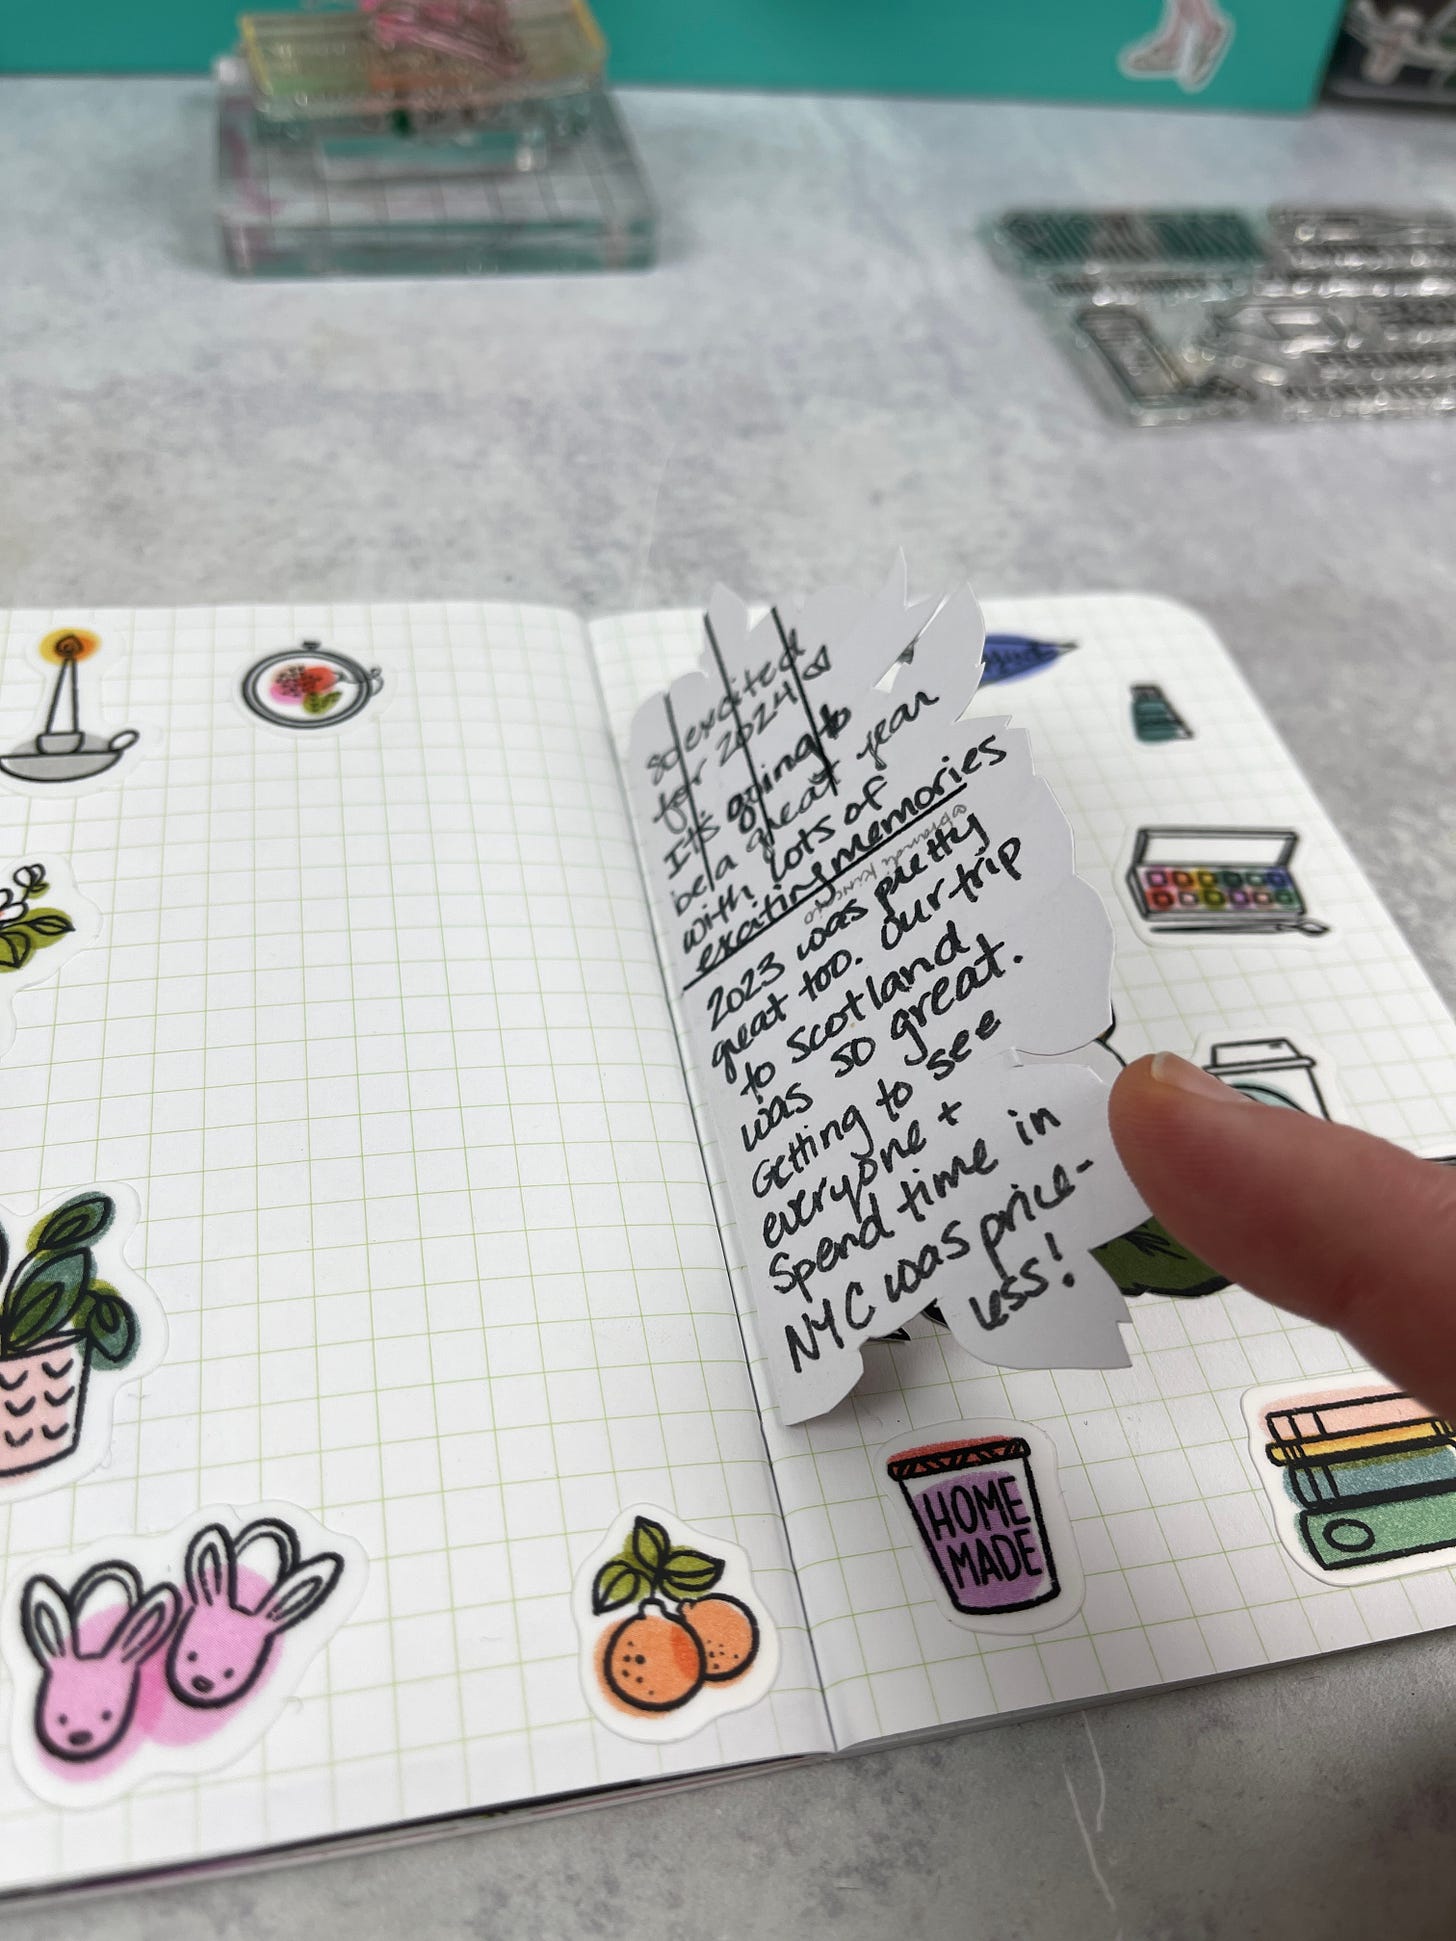 so excited
for 2024!
It's going to
be a great year
with lots of
exciting memories
2023 was pretty
great too. Our trip
to Scotland
was so great.
Getting to see
everyone +
Spend time in
NYC was price-
less!
HOME
MADE